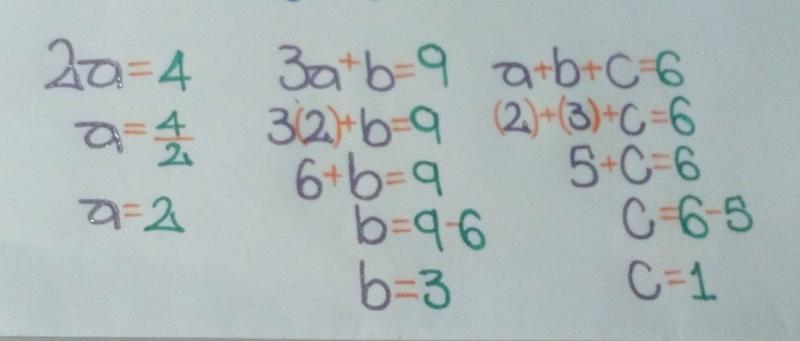 2a=4
a=4/2
a=2
3a+b=9
3(2)+b=9
6+b=9
b=9-6
b=3
a+b+c=6
(2)+(3)+c=6
5+c=6
c=6-5
c=1